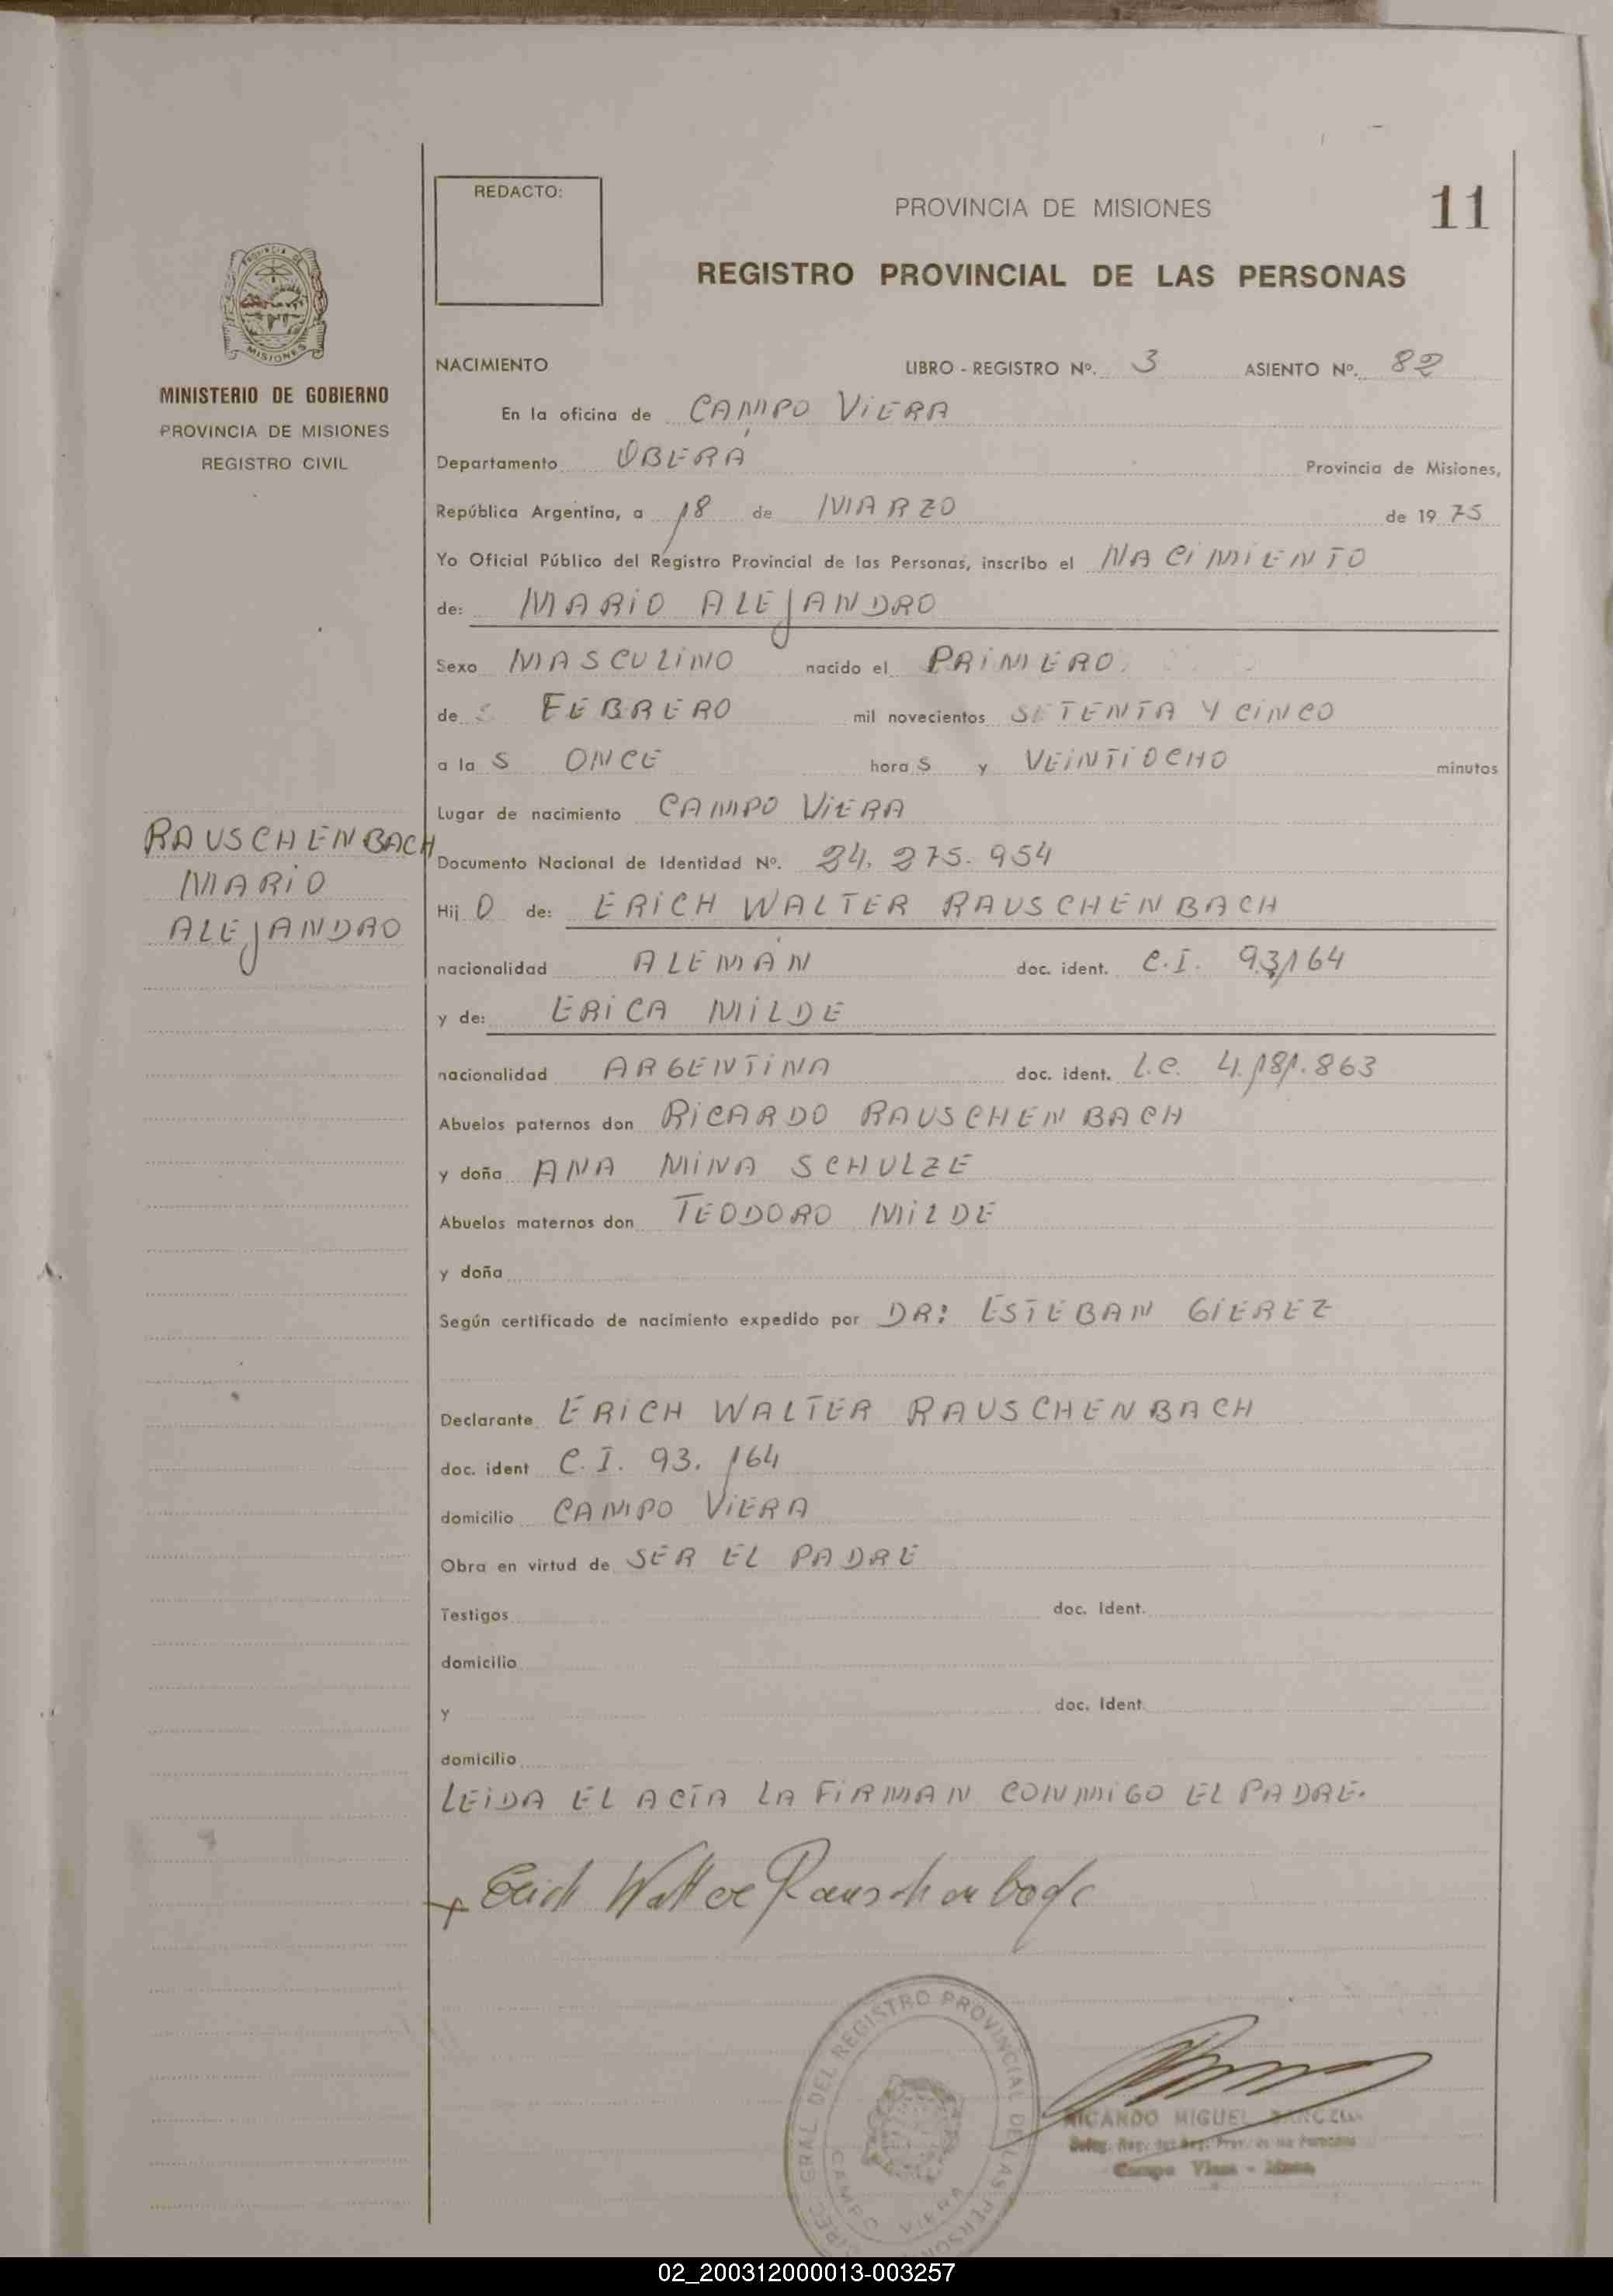 REDACTO:
PROVINCIA DE MISIONES
11
REGISTRO PROVINCIAL DE LAS PERSONAS
PROVINCIA DE
MISIONES
MINISTERIO DE GOBIERNO
PROVINCIA DE MISIONES
REGISTRO CIVIL
NACIMIENTO LIBRO - REGISTRO Nº. 3 ASIENTO Nº. 82
En la oficina de CAMPO VIERA
Departamento OBERÁ Provincia de Misiones,
República Argentina, a 18 de MARZO de 1975
Yo Oficial Público del Registro Provincial de las Personas, inscribo el NACIMIENTO
de: MARIO ALEJANDRO
Sexo MASCULINO nacido el PRIMERO
de FEBRERO mil novecientos SETENTA Y CINCO
a la S ONCE hora S y VEINTIOCHO minutos
Lugar de nacimiento CAMPO VIERA
RAUSCHENBACH
MARIO
ALEJANDRO
Documento Nacional de Identidad Nº. 24.275.954
Hij O de: ERICH WALTER RAUSCHENBACH
nacionalidad ALEMÁN doc. ident. C.I. 93164
y de: ERICA MILDE
nacionalidad ARGENTINA doc. ident. L.C. 4.181.863
Abuelos paternos don RICARDO RAUSCHENBACH
y doña ANA MINA SCHULZE
Abuelos maternos don TEODORO MILDE
y doña
Según certificado de nacimiento expedido por DR: ESTEBAN GIEREZ
Declarante ERICH WALTER RAUSCHENBACH
doc. ident C.I. 93.164
domicilio CAMPO VIERA
Obra en virtud de SER EL PADRE
Testigos doc. Ident.
domicilio
y doc. Ident.
domicilio
LEIDA EL ACTA LA FIRMAN CONMIGO EL PADRE.
x Erich Walter Rauschenbach
DIREC. GRAL. DEL REGISTRO PROVINCIAL DE LAS PERSON
CAMPO VIERA
RICARDO MIGUEL
Campo Viera - Mnes.
02_200312000013-003257